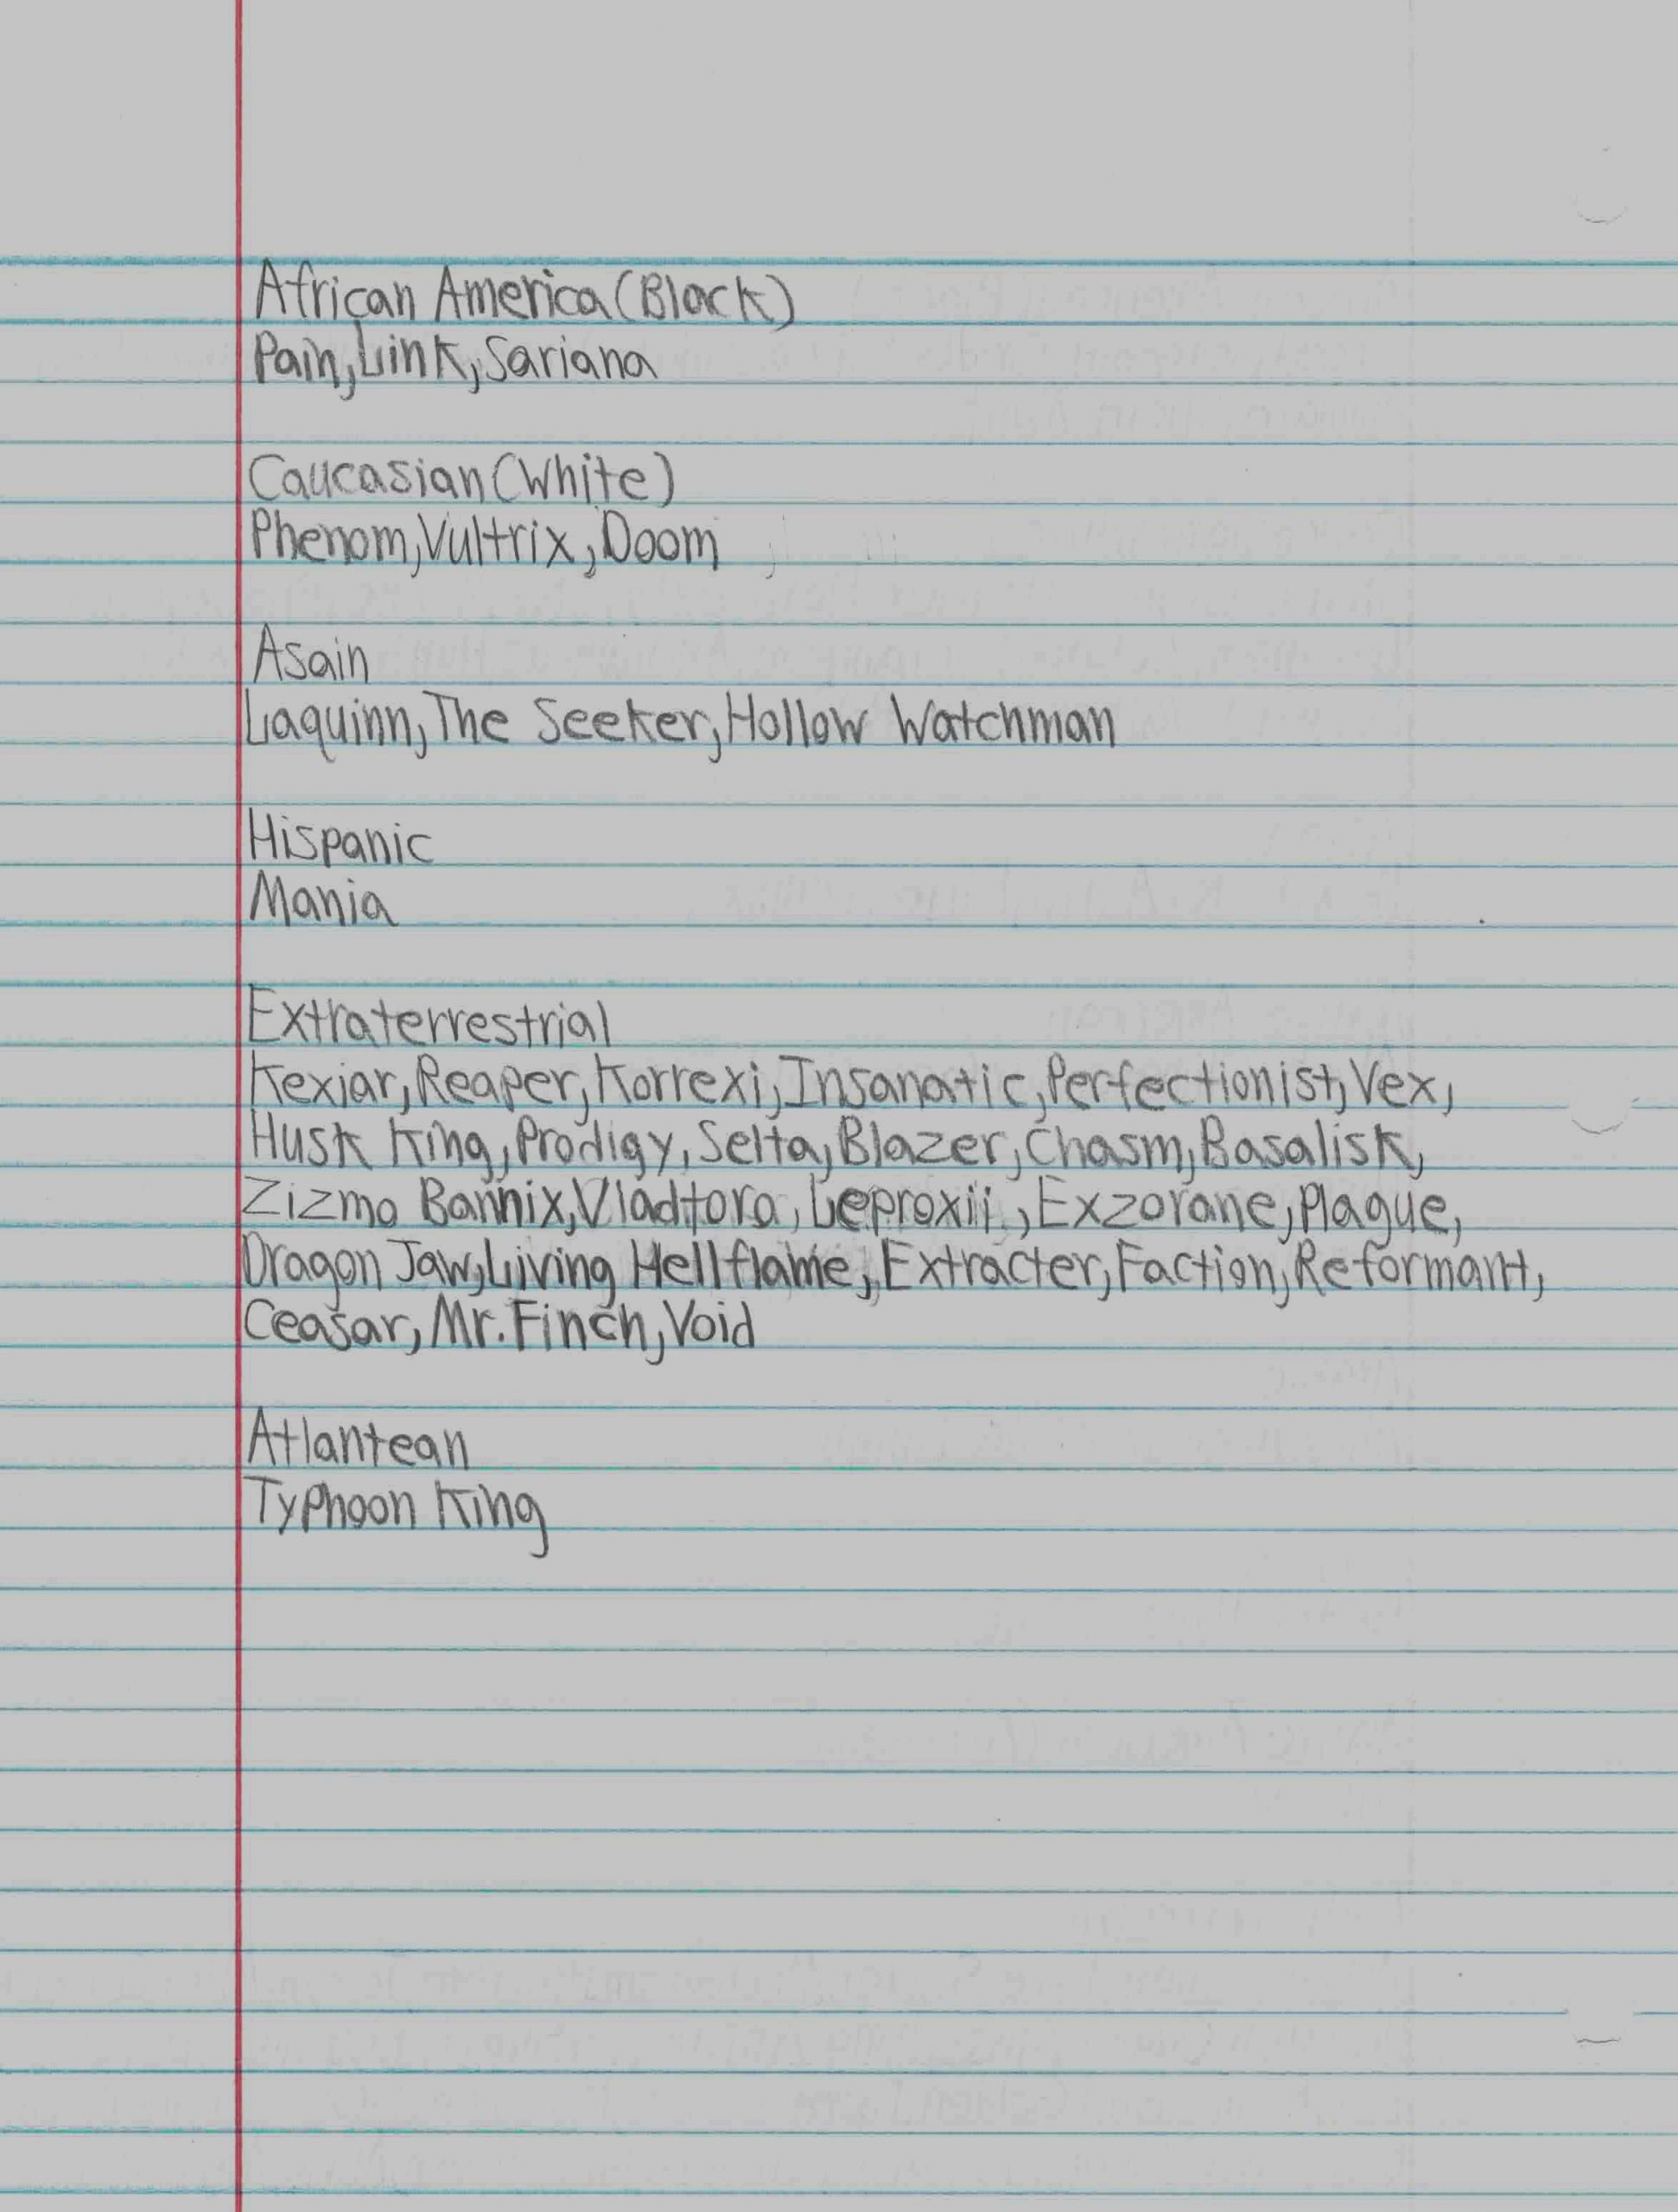 African America (Black)
Pain, Link, Sariana
Caucasian (White)
Phenom, Vultrix, Doom
Asain
Laquinn, The Seeker, Hollow Watchman
Hispanic
Mania
Extraterrestrial
Kexiar, Reaper, Korrexi, Insanatic, Perfectionist, Vex,
Husk King, Prodigy, Selta, Blazer, Chasm, Basalisk,
Zizmo Bannix, Vladtora, Leproxii, Exzorane, Plague,
Dragon Jaw, Living Hellflame, Extracter, Faction, Reformant,
Ceasar, Mr. Finch, Void
Atlantean
Typhoon King